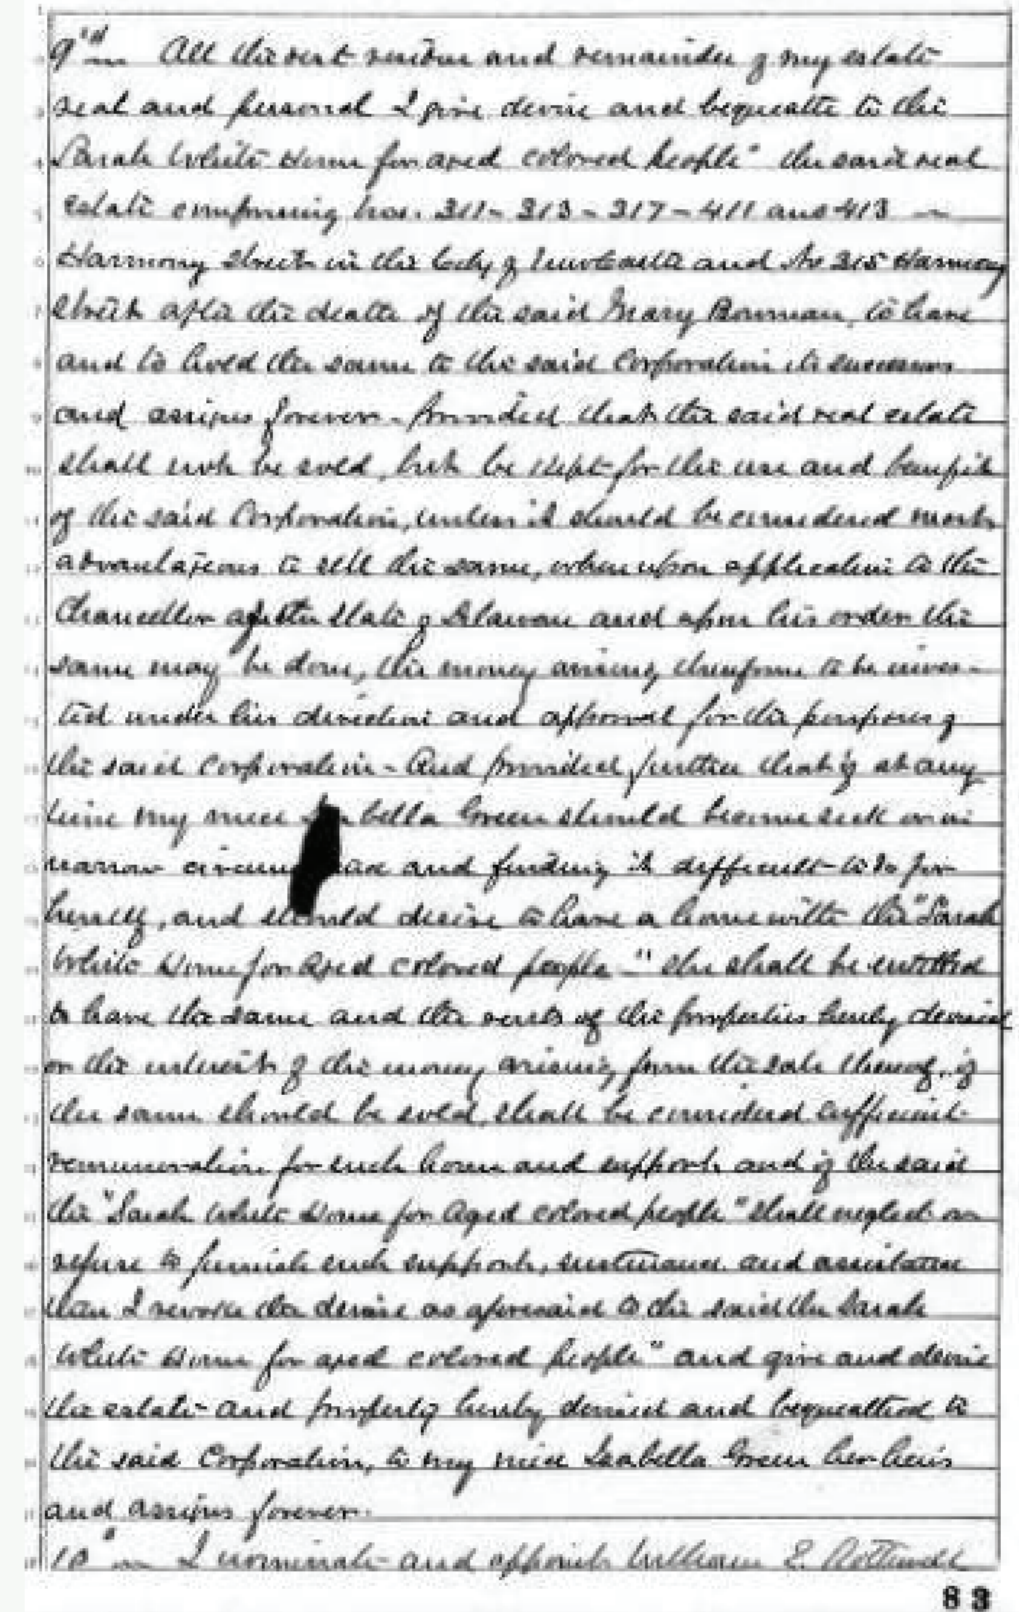 9th All the rest residue and remainder of my estate
real and personal I give devise and bequeathe to the
Sarah White Home for aged colored people" the said real
estate comprising Nos. 311 - 313 - 317 - 411 and 413 —
Harmony Street in the City of Newcastle and No 315 Harmony
Street after the death of the said Mary Bowman, to have
and to hold the same to the said Corporation its successors
and assigns forever - Provided that the said real estate
shall not be sold, but be kept for the use and benefit
of the said Corporation, unless it should be considered most
advantageous to sell the same, when upon application to the
Chancellor of the State of Delaware and upon his order the
same may be done, the money arising therefrom to be inves-
ted under his direction and approval for the purposes of
the said Corporation - And provided further that if at any
time my niece bella Green should become sick or in
narrow and finding it difficult to do for
herself, and should desire to have a home with the "Sarah
White Home for Aged colored people" she shall be entitled
to have the same and the rents of the properties hereby devised
or the interest of the money arising from the sale thereof, if
the same should be sold, shall be considered sufficient
remuneration for such home and support, and if the said
the "Sarah White Home for Aged colored people" shall neglect or
refuse to furnish such support, sustenance and assistance
then I revoke the devise as aforesaid to the said the Sarah
White Home for aged colored people" and give and devise
the estate and property hereby devised and bequeathed to
the said Corporation, to my niece Isabella Green her heirs
and assigns forever.
10th I nominate and appoint William E. Rothwell
83